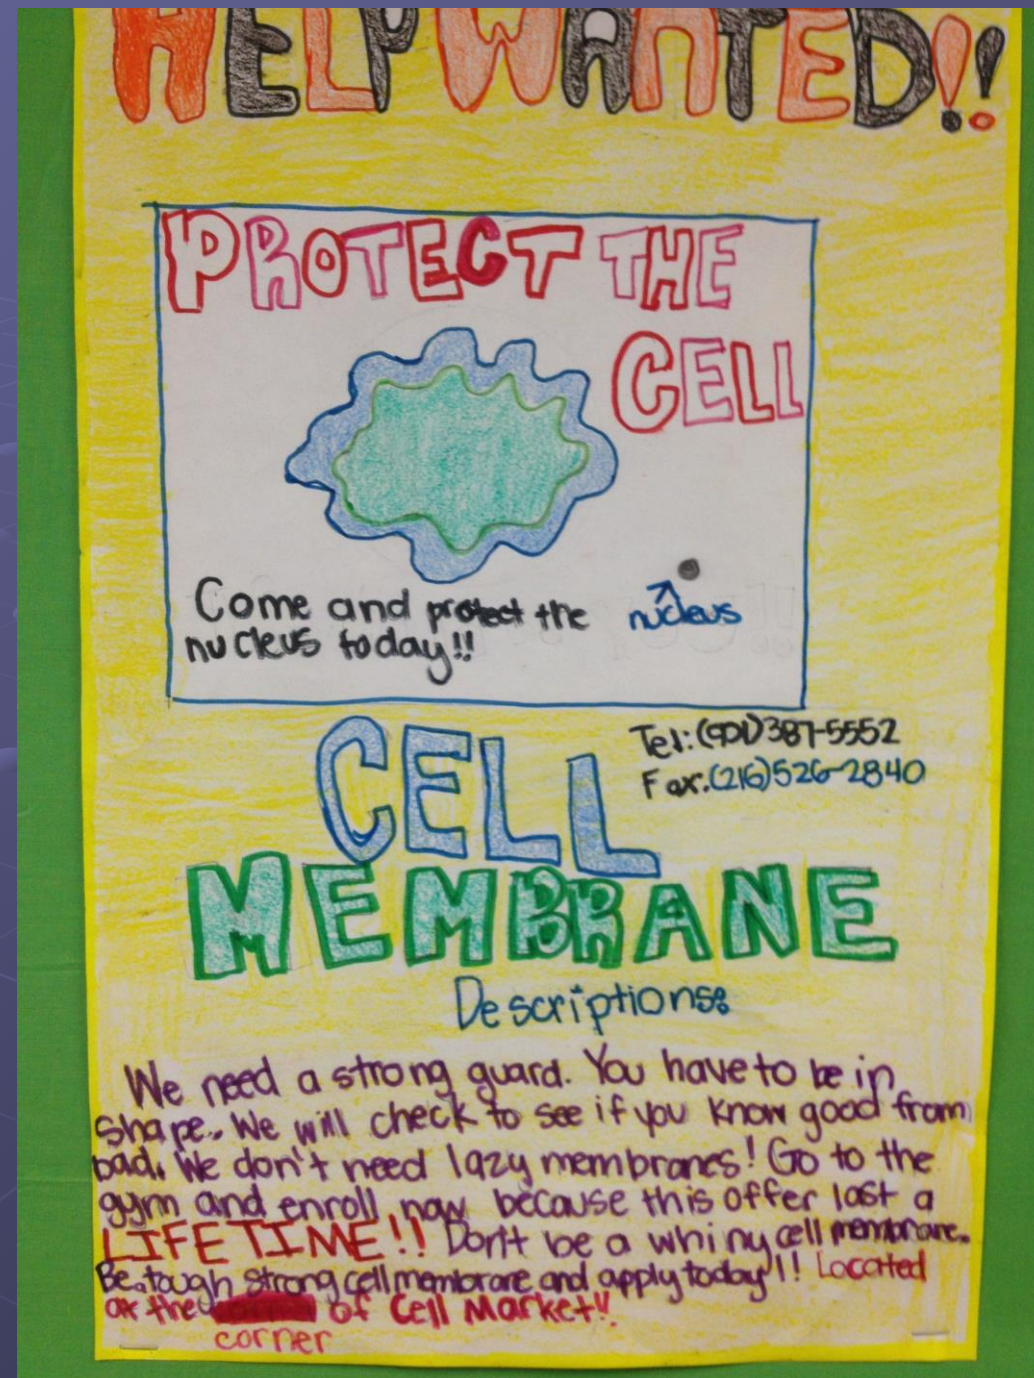 HELP WANTED!!
PROTECT THE
CELL
nucleus
Come and protect the
nucleus today!!
Tel: (901)387-5552
Fax: (216)526-2840
CELL
MEMBRANE
Descriptions:
We need a strong guard. You have to be in
shape. We will check to see if you know good from
bad. We don't need lazy membranes! Go to the
gym and enroll now because this offer last a
LIFETIME!! Don't be a whiny cell membrane.
Be tough strong cell membrane and apply today!!! Located
at the of Cell Market!!
corner